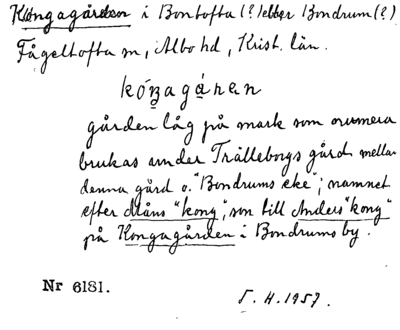 Kongagården i Bontofta (?) eller Bondrum (?)
Fågeltofta sn, Albo hd, Krist. län.
kóŋagá̱ꞃen
gården låg på mark som numera
brukas under Trälleborgs gård mellan
denna gård o. "Bondrums eke"; namnet
efter Måns "kong", son till Anders "kong"
på Kongagården i Bondrums by.
Nr 6181.
5. H. 1957.